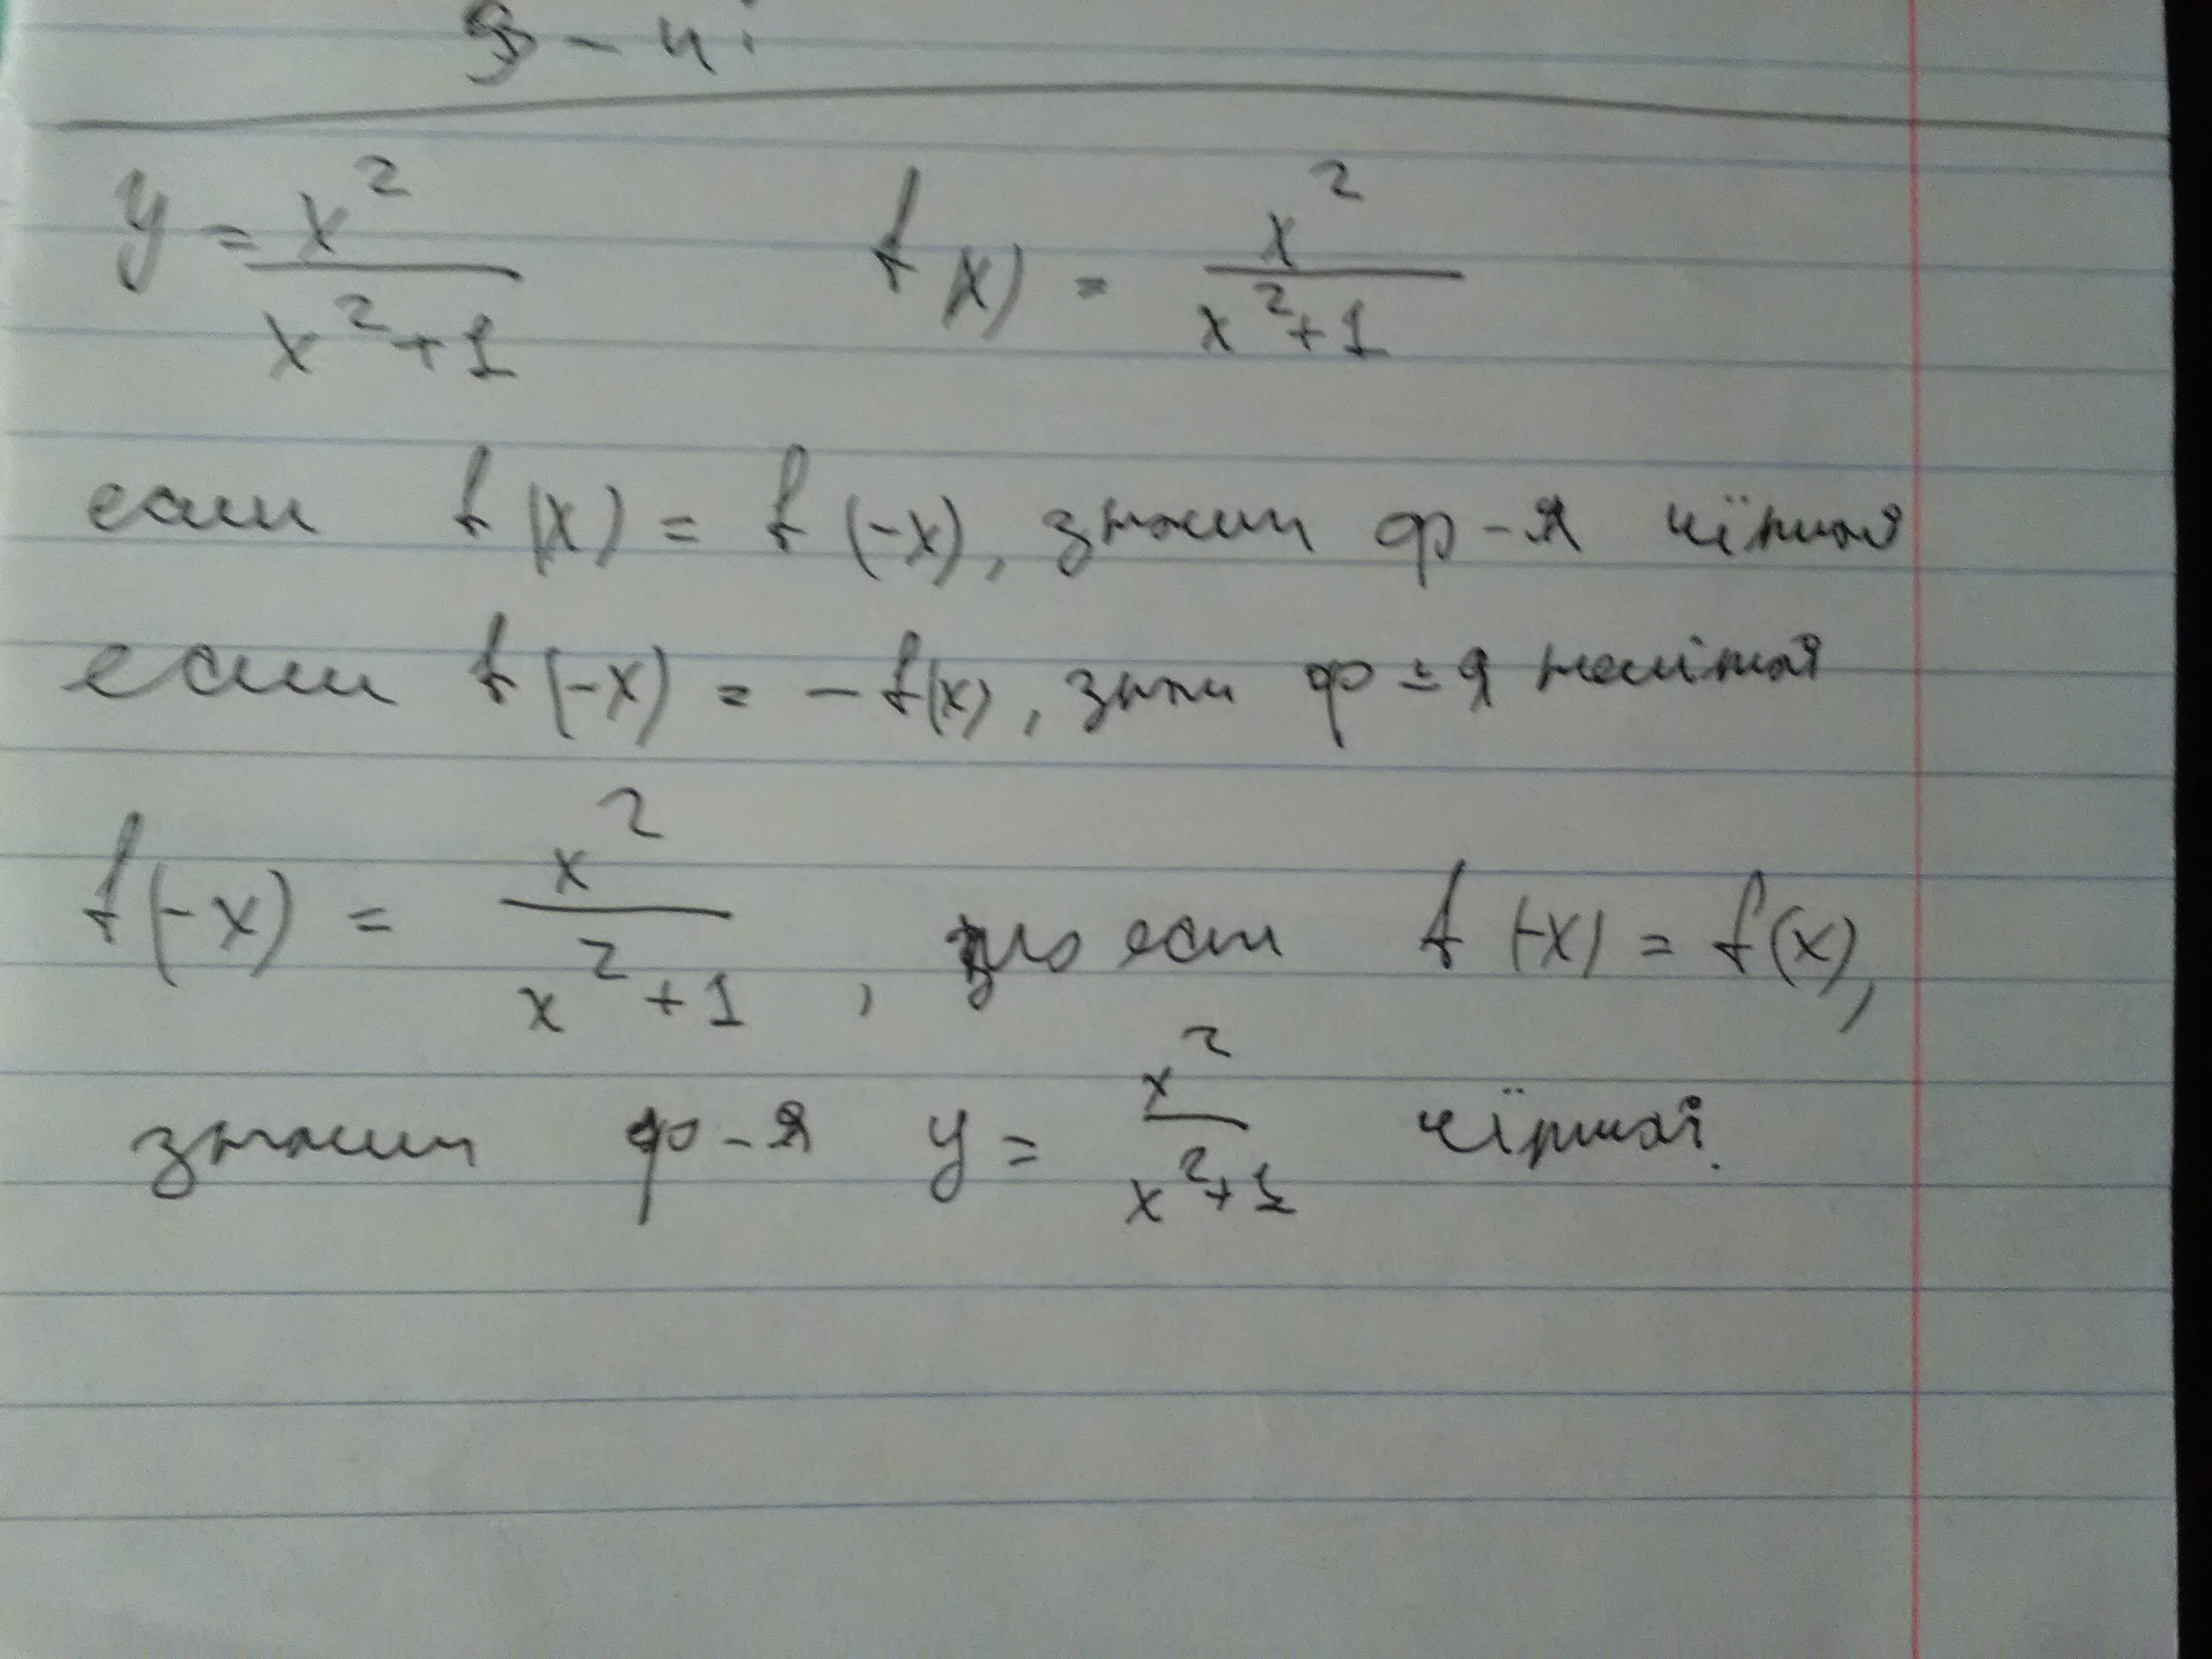 y = x²/(x²+1)    f(x) = x²/(x²+1)
если f(x) = f(-x), значит ф-я чётная
если f(-x) = -f(x), знач ф-я нечётная
f(-x) = x²/(x²+1), то есть f(-x) = f(x),
значит ф-я y = x²/(x²+1) чётная.